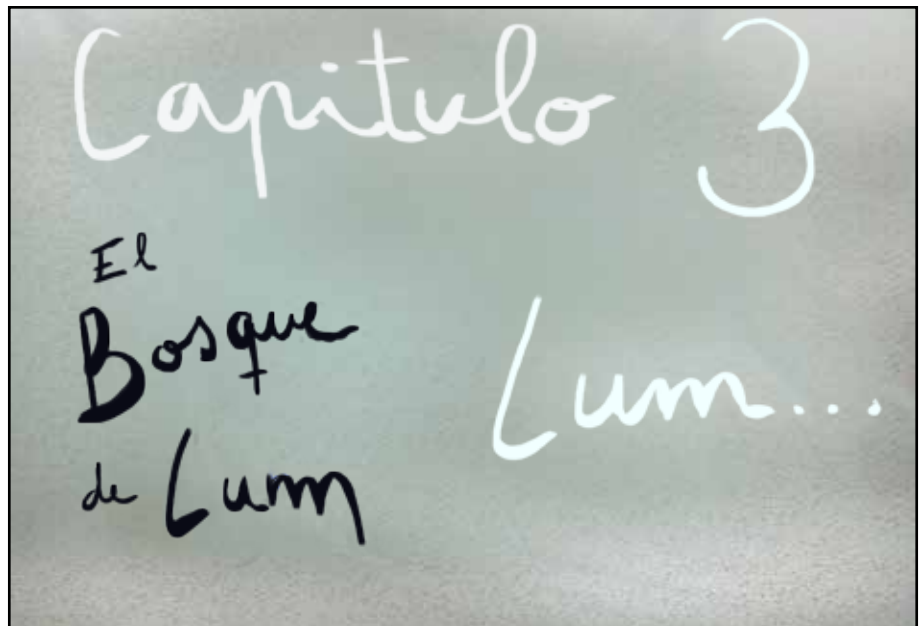 Capitulo 3
El
Bosque
de Lum
Lum...